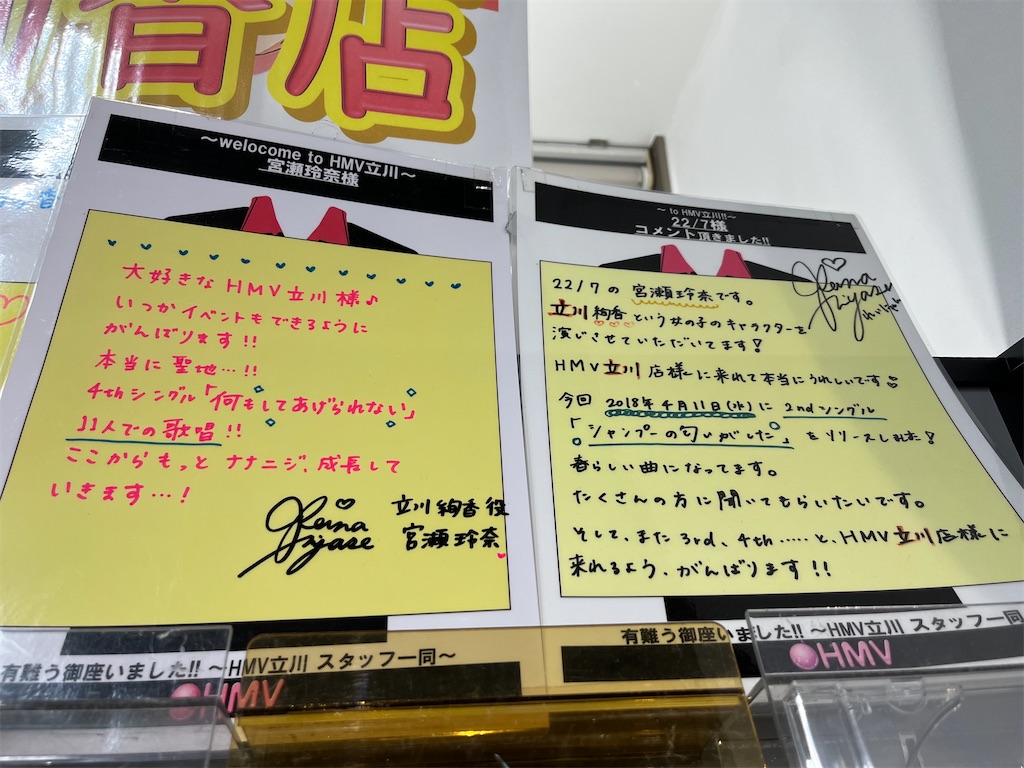 音店
〜welocome to HMV立川〜
宮瀬玲奈様
大好きなHMV立川様♪
いつかイベントもできるように
がんばります!!
本当に聖地…!!
4thシングル「何もしてあげられない」
11人での歌唱!!
ここからもっとナナニジ、成長して
いきます…!
Reina Miyase
立川絢香役
宮瀬玲奈
有難う御座いました!! 〜HMV立川 スタッフ一同〜
HMV
〜 to HMV立川!!〜
22/7様
コメント頂きました!!
Reina Miyase
22/7の宮瀬玲奈です。
立川絢香という女の子のキャラクターを
演じさせていただいてます!
HMV立川店様に来れて本当にうれしいです♡
今回 2018年4月11日(水)に 2ndシングル
「シャンプーの匂いがした」をリリースしました!
春らしい曲になってます。
たくさんの方に聞いてもらいたいです。
そして、また3rd、4th……と、HMV立川店様に
来れるよう、がんばります!!
有難う御座いました!! 〜HMV立川 スタッフ一同
HMV